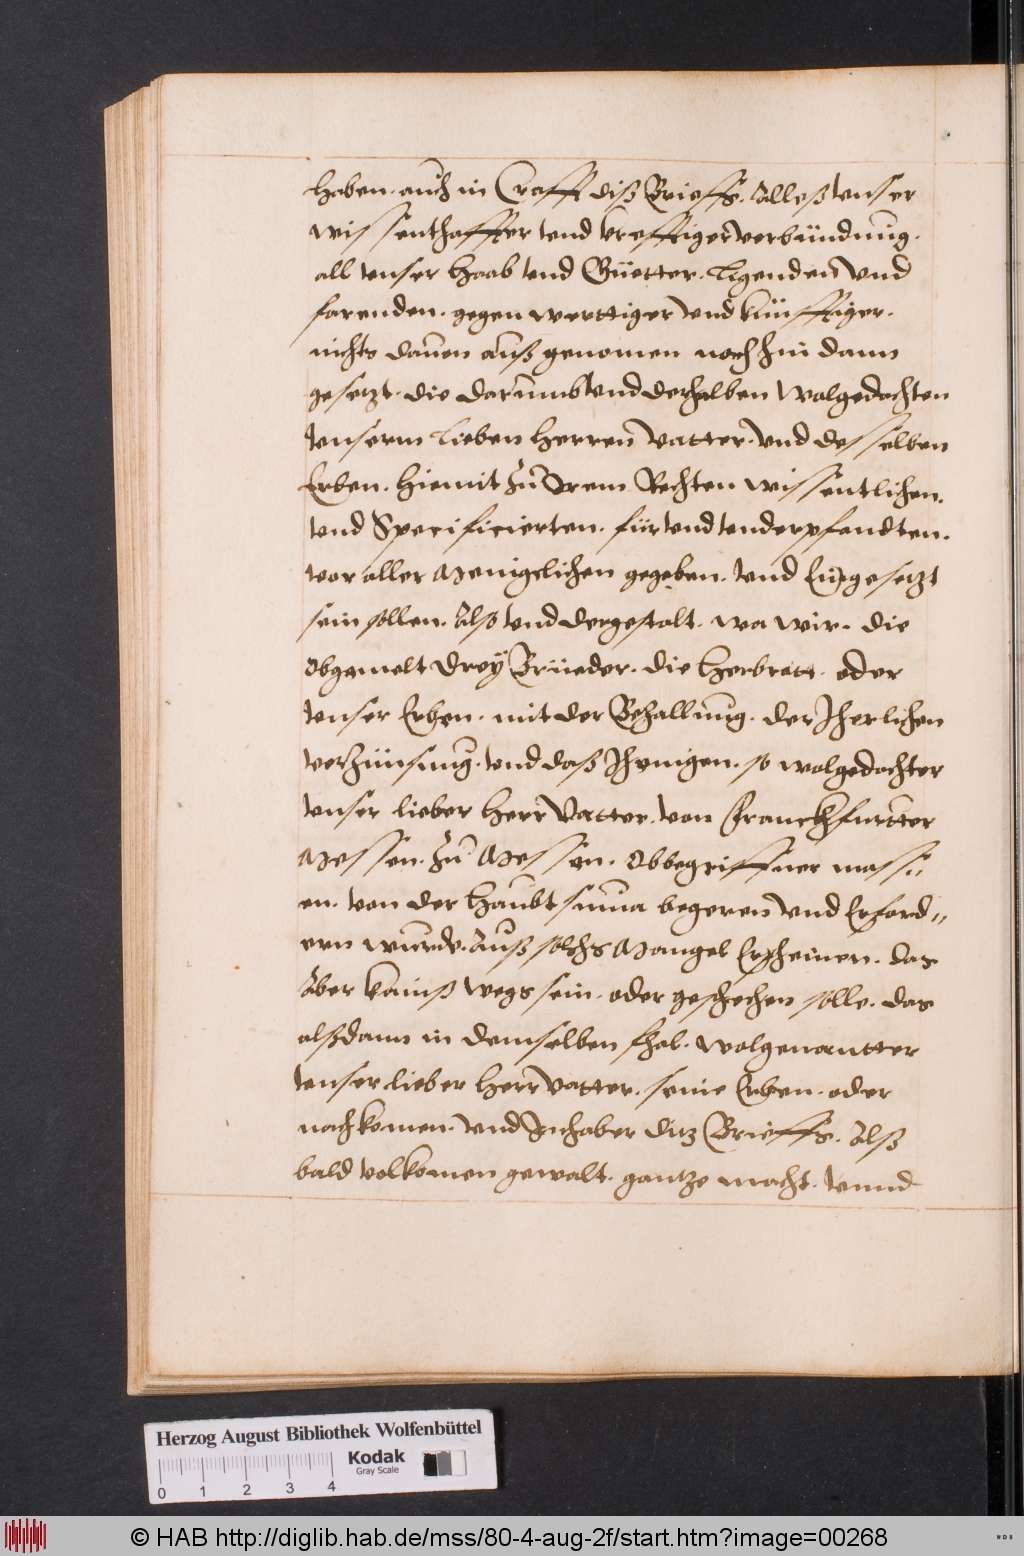 haben. auch in Crafft diß Brieffs. Alleß vnser
wissenthaffter vnd Crefftiger verbündnung.
all vnser Haab vnd Güetter. Ligenden Vnd
farenden. gegenwerttiger vnd künfftiger.
nichts dauon auß genomen noch hin dann
gesetzt. die darumb vnd derhalben Wolgedachten
vnserm Lieben Herren Vatter. vnd desselben
Erben. hiemit Zů Irem Rechten wissentlichen.
vnd Specificierten. für vnd vnderpfandten.
vor aller Menigclichen gegeben. vnd Eingesetzt
sein sollen. Also vnd dergestalt. wa wir. die
Obgemelt Drey Brüeder. die Herbrott. oder
vnser Erben. mit der Bezallung. der Jherlichen
verzünsung. vnd daß Jhenigen. so wolgedachter
vnser lieber Herr Vatter. von Franckhfurtter
Messen. Zů Messen. Obbegriffner mass〃
en. von der Haubt suma begeren vnd Erford〃
ern wurde. Auß solchs Mangel Erscheinen. das
Aber kainß wegs sein. oder geschechen solle. das
alßdann in demselben fhal. wolgenantter
vnser lieber Herr Vatter. seine Erben. oder
nachkomen. vnd Inhaber ditz Brieffs. Alß
bald volkomen gewalt. gantze macht. vnnd
Herzog August Bibliothek Wolfenbüttel
Kodak
Gray Scale
0 1 2 3 4
© HAB http://diglib.hab.de/mss/80-4-aug-2f/start.htm?image=00268